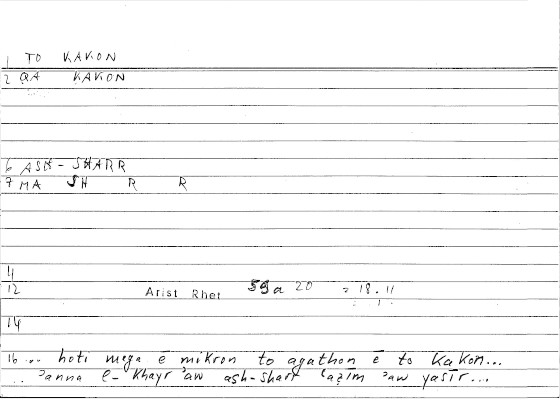 1 TO KAKON
2 QA KAKON
6 ASH-SHARR
7 MA SH R R
11
12 Arist Rhet 59a 20 = 18.11
14
16 ... hoti mega ē mikron to agathon ē to kakon...
... ʾanna l-khayr ʾaw ash-sharr ʿaẓīm ʾaw yasīr...